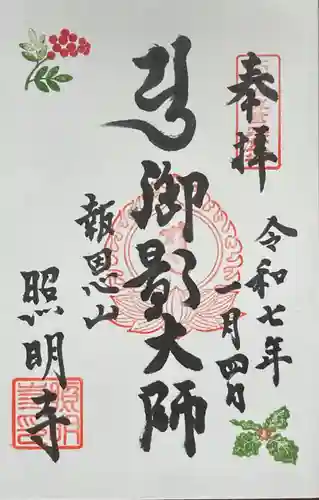 奉拝
令和七年
一月四日
御影大師
報恩山
照明寺